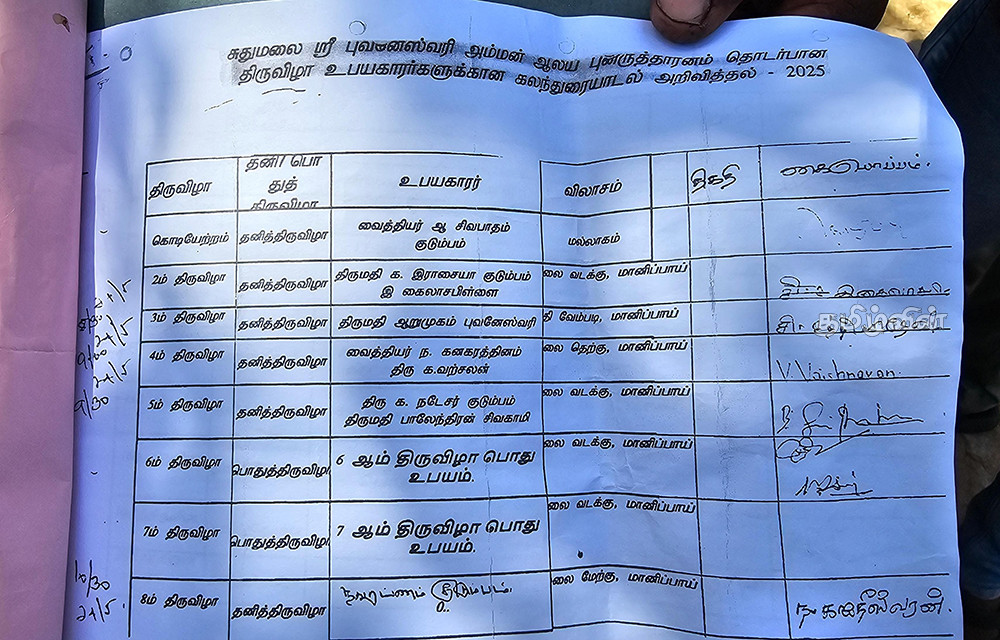 சுதுமலை ஸ்ரீ புவனேஸ்வரி அம்மன் ஆலய புனருத்தாரணம் தொடர்பான
திருவிழா உபயகாரர்களுக்கான கலந்துரையாடல் அறிவித்தல் - 2025
திருவிழா தனி/ பொதுத் திருவிழா உபயகாரர் விலாசம் திகதி கையொப்பம்.
கொடியேற்றம் தனித்திருவிழா வைத்தியர் ஆ சிவபாதம் குடும்பம் மல்லாகம்
2ம் திருவிழா தனித்திருவிழா திருமதி க. இராசையா குடும்பம் இ கைலாசபிள்ளை லை வடக்கு, மானிப்பாய்
3ம் திருவிழா தனித்திருவிழா திருமதி ஆறுமுகம் புவனேஸ்வரி தி வேம்படி, மானிப்பாய்
தமிழ்வின்
4ம் திருவிழா தனித்திருவிழா வைத்தியர் ந. கனகரத்தினம் திரு க.வற்சலன் லை தெற்கு, மானிப்பாய் V.Vaishnavan.
5ம் திருவிழா தனித்திருவிழா திரு க. நடேசர் குடும்பம் திருமதி பாலேந்திரன் சிவகாமி லை வடக்கு, மானிப்பாய்
6ம் திருவிழா பொதுத்திருவிழா 6 ஆம் திருவிழா பொது உபயம். லை வடக்கு, மானிப்பாய்
7ம் திருவிழா பொதுத்திருவிழா 7 ஆம் திருவிழா பொது உபயம். லை வடக்கு, மானிப்பாய்
10/30
24/5.
8ம் திருவிழா தனித்திருவிழா குடும்பம். லை மேற்கு, மானிப்பாய்